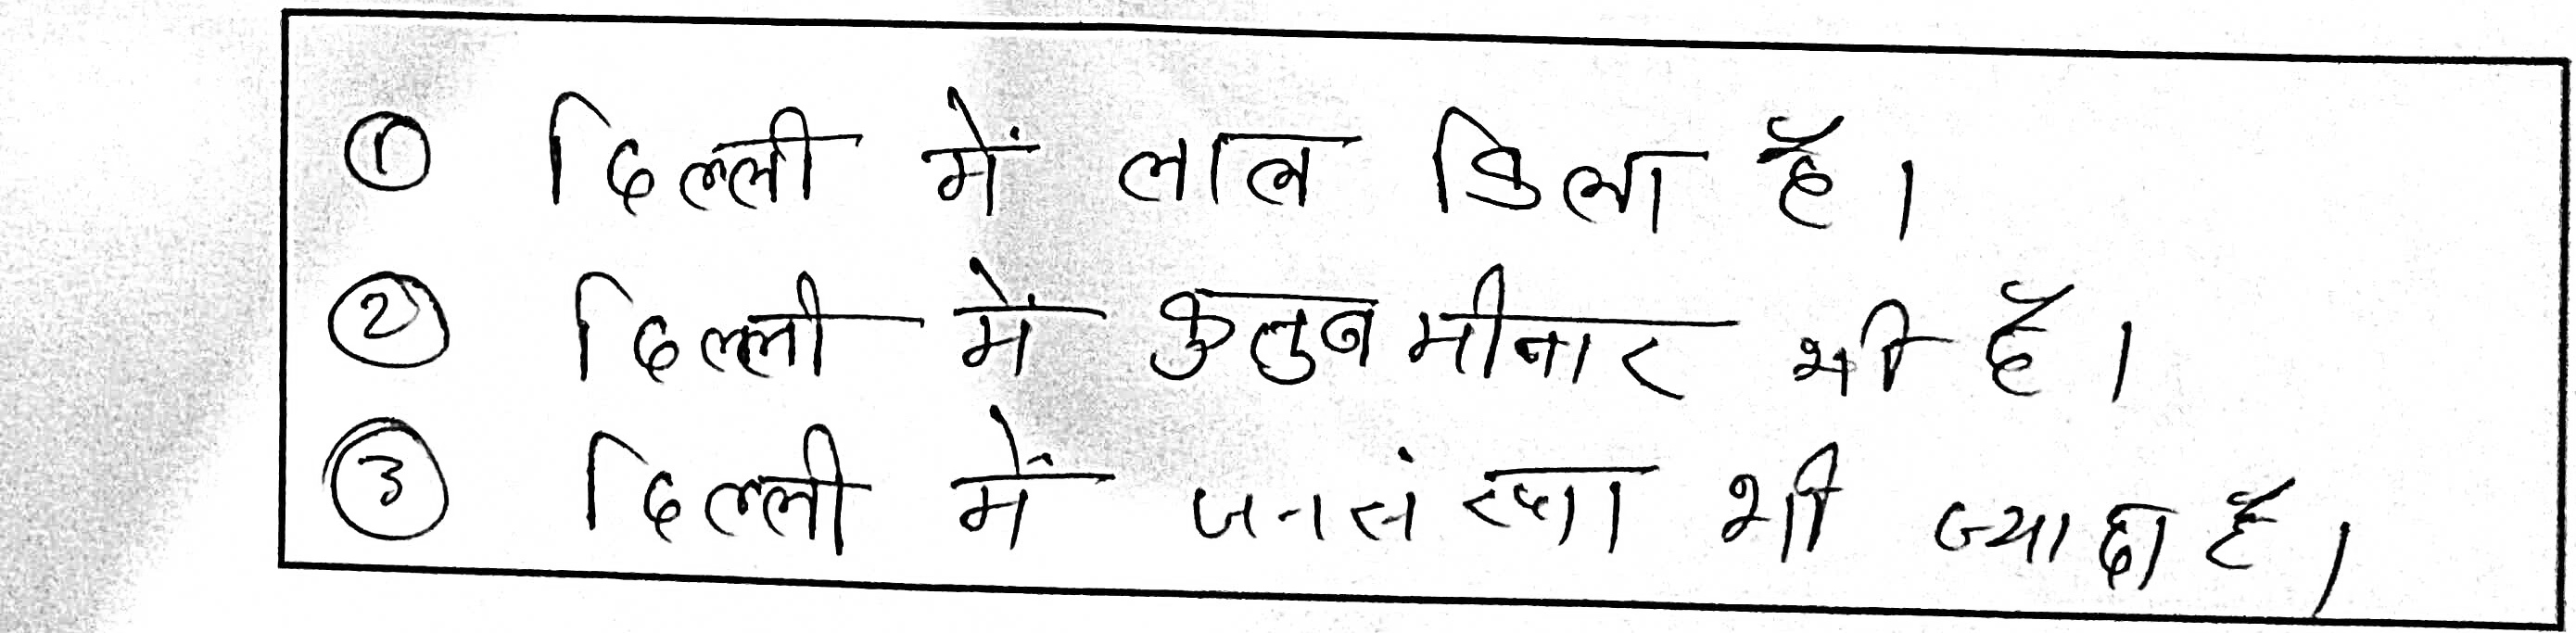 ① दिल्ली में लाल किला है।
② दिल्ली में कुतुब मीनार भी है।
③ दिल्ली में जनसंख्या भी ज्यादा है।